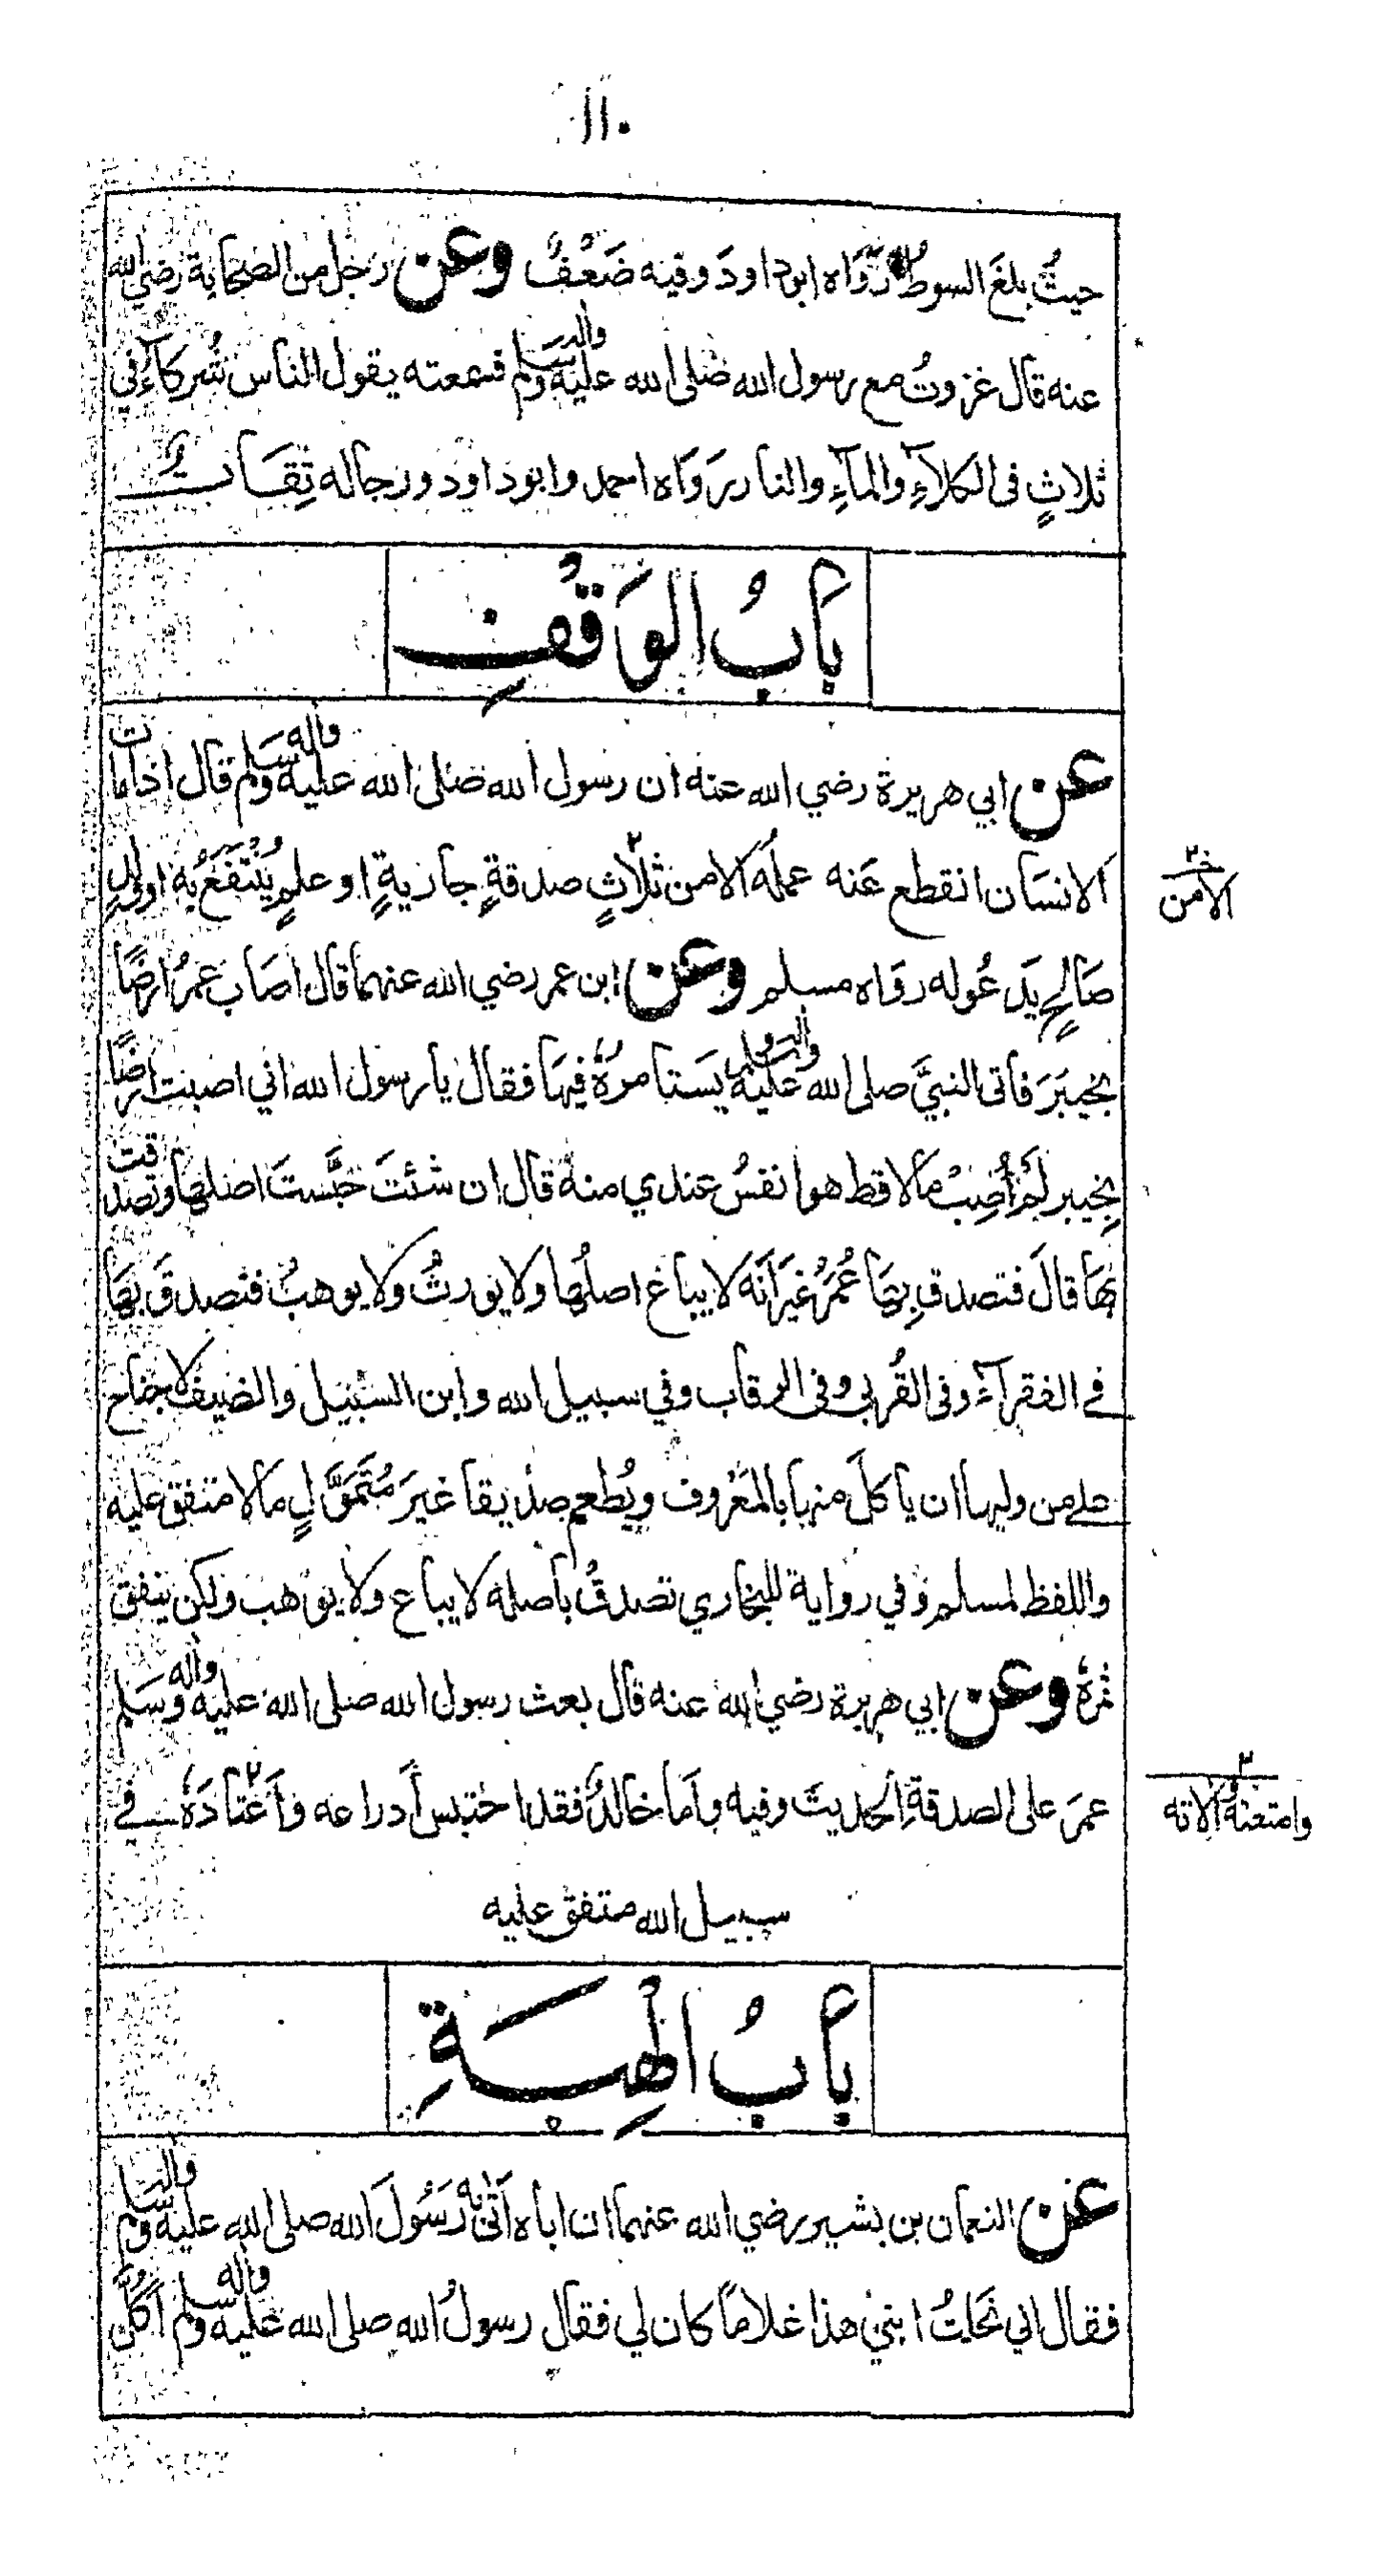 ١١٠
حيثُ بلغَ السوطُ رَوَاه ابوداودَ وفيه ضَعْفٌ وعن رَجُل من الصحابة رَضي الله
عنه قال غزوتُ مع رسول الله صَلى الله عليه واله وسَلم فسمعته يقول الناس شُركاءُ في
ثلاثٍ في الكلاءِ والماءِ والنار رَوَاه احمد وابوداود ورجاله ثِقَاتٌ
بَابُ الوَقْفِ
عن ابي هريرة رضي الله عنه ان رسول الله صَلى الله عليه واله وسَلم قال اذا مات
الانسَان انقطع عَنه عملُه الا من ثلاثٍ صدقةٍ جاريةٍ او علمٍ يُنتَفَعُ به او ولدٍ
الا من
صَالحٍ يَدعُوله روَاه مسلم وعن ابن عمر رضي الله عنهما قال اصَاب عمرُ ارضًا
بخيبَرَ فاتى النبيَّ صلى الله عليه واله وسلم يَستامرُهُ فيهَا فقال يا رسول الله اني اصبت ارضًا
بخيبر لم اُصِبْ مالا قط هو انفسُ عندي منه قال ان شئتَ حَبَّستَ اصلها وتصدقت
بهَا قالَ فتصدق بهَا عُمَرُ غيرَ اَنَّه لا يباع اصلُها ولا يورثُ ولا يوهبُ فتصدقَ بهَا
في الفقرآءِ وفي القُربى وفي الرقاب وفي سبيل الله وابن السَّبيل والضيف لا جناح
على من وليها ان ياكلَ منها بالمَعْرُوف ويُطعم صَديقا غيرَ مُتَمَوَّلٍ مالا متفق عليه
واللفظ لمسلم وفي رواية للبخاري تصدقْ باصله لا يباع ولا يوهب ولكن ينفق
ثمرهُ وعن ابي هريرة رضي الله عنه قال بعث رسول الله صلى الله عليه واله وسَلم
عمرَ على الصدقةِ الحديثَ وفيه وامَا خالدٌ فقد احتبس اَدراعه وَاَعْتادَهُ في
وامتعته آلاته
سبيل الله متفق عليه
بَابُ الهِبَةِ
عن النعمان بن بشير رضي الله عنهما ان اباه اَتىٰ به رَسُولَ الله صلى الله عليه واله وسلم
فقال اني نحَلتُ ابني هذا غلامًا كان لي فقال رسولُ الله صلى الله عليه واله وسلم اَكُلَّ